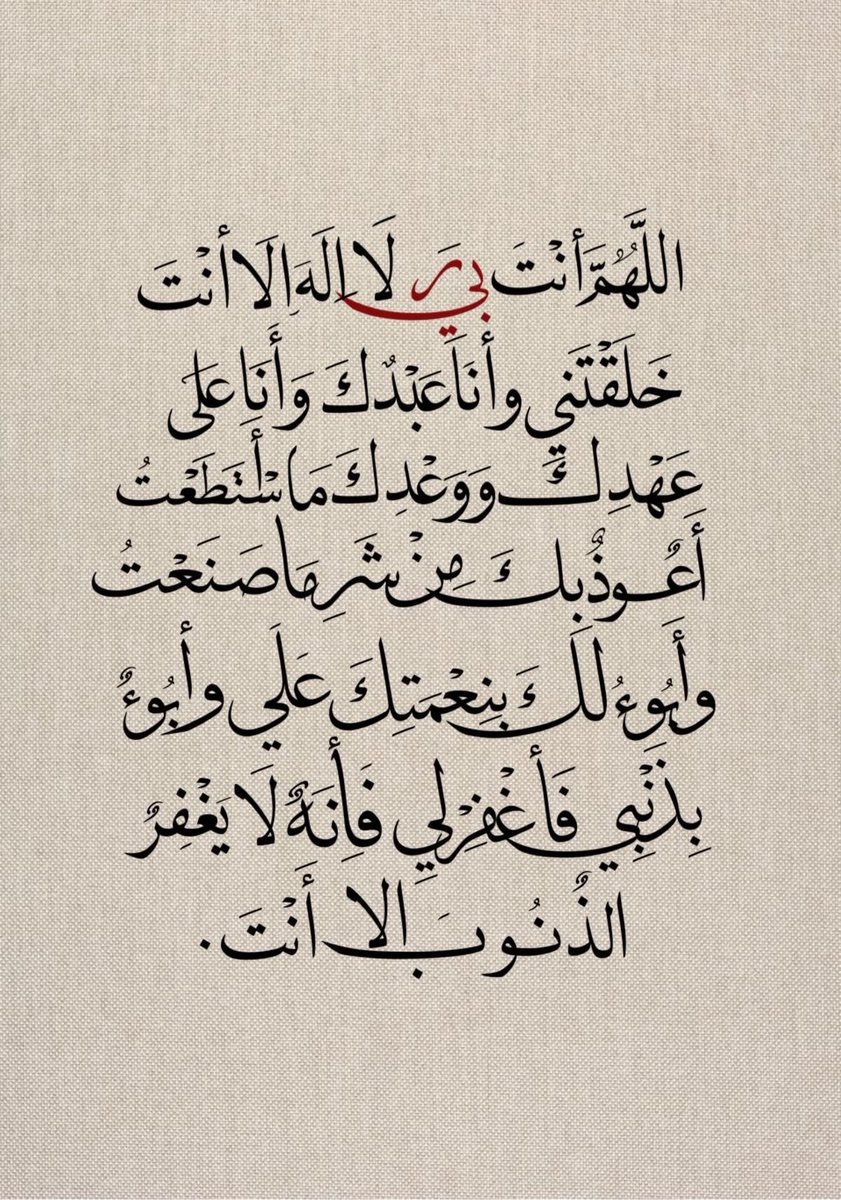 اللَّهُمَّ أنْتَ رَبي لَا إِلَهَ إلَا أنْتَ
خَلَقْتَني وأنَا عَبْدُكَ وَأَنَا عَلى
عَهْدِكَ وَوَعْدِكَ مَا سْأتَطَعْتُ
أَعُوذُ بِكَ مِنْ شَرِ مَا صَنَعْتُ
وأَبُوءُ لَكَ بنِعْمَتِكَ عَلَي وأبُوءُ
بِذَنْبِي فَأغْفِرْ لي فَأِنَهُ لَا يَغْفِرُ
الذُنُوبَ إلا أنْتَ.